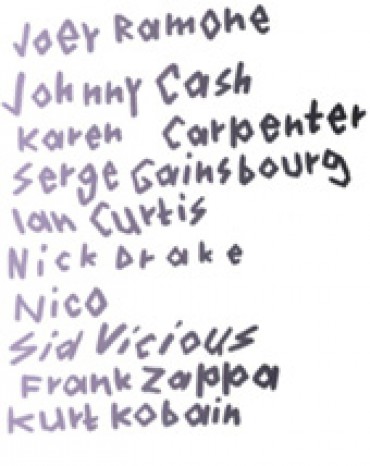 Joey Ramone
Johnny Cash
Karen Carpenter
Serge Gainsbourg
Ian Curtis
Nick Drake
Nico
Sid Vicious
Frank Zappa
Kurt Kobain